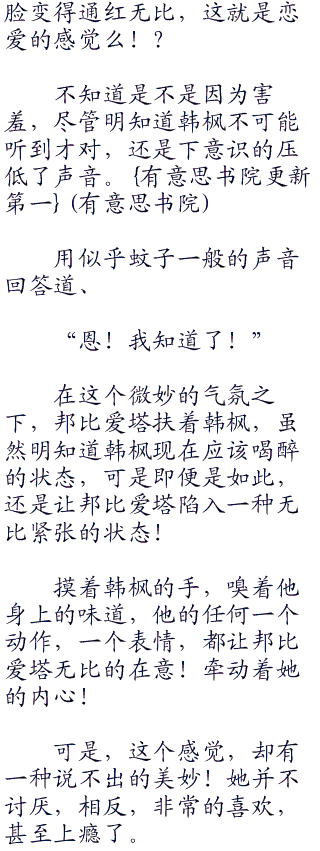 脸变得通红无比，这就是恋
爱的感觉么！？
不知道是不是因为害
羞，尽管明知道韩枫不可能
听到才对，还是下意识的压
低了声音。{有意思书院更新
第一}(有意思书院)
用似乎蚊子一般的声音
回答道、
“恩！我知道了！”
在这个微妙的气氛之
下，邦比爱塔扶着韩枫，虽
然明知道韩枫现在应该喝醉
的状态，可是即便是如此，
还是让邦比爱塔陷入一种无
比紧张的状态！
摸着韩枫的手，嗅着他
身上的味道，他的任何一个
动作，一个表情，都让邦比
爱塔无比的在意！牵动着她
的内心！
可是，这个感觉，却有
一种说不出的美妙！她并不
讨厌，相反，非常的喜欢，
甚至上瘾了。